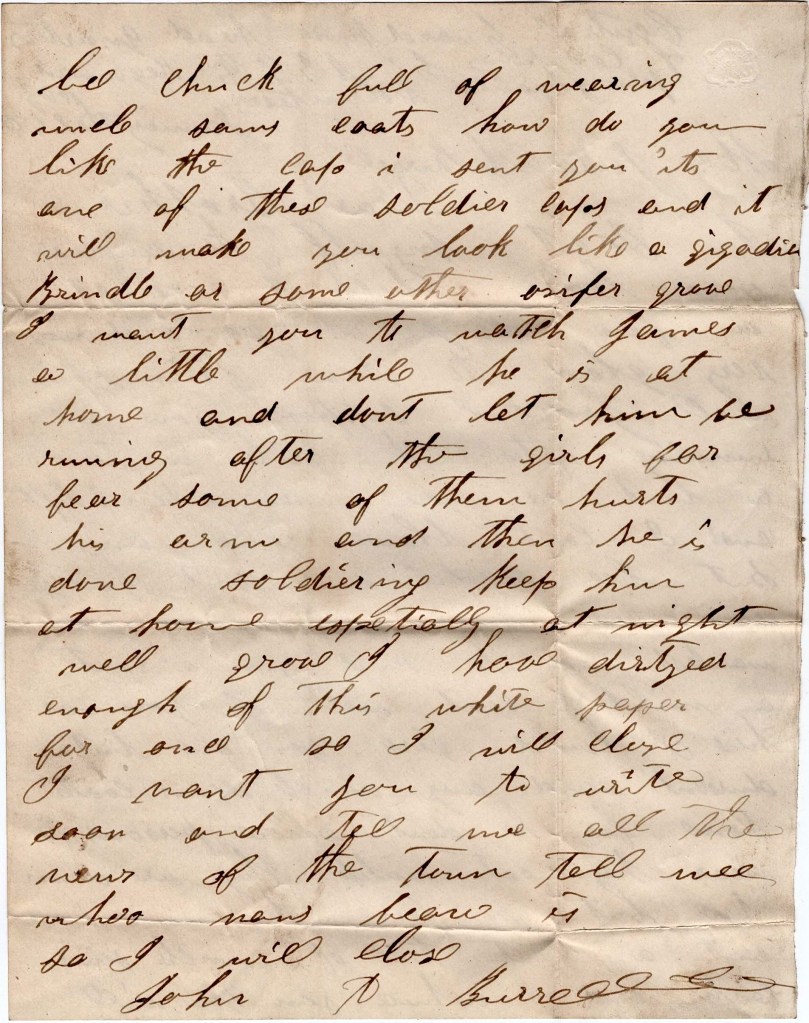 be chuck full of wearing
uncle sams coats how do you
like the cap i sent you its
one of thes soldier caps and it
will make you look like a gigadie
Brindle or some other osifer grove
I want you to watch James
a little while he is at
home and dont let him be
runing after the girls for
fear some of them hurts
his arm and then he is
done soldiering keep him
at home espetially at night
well grove I have dirtyed
enough of this white paper
for and so I will close
I want you to write
soon and tell me all the
news of the town tell mee
whos beaw is
so I will close
John D Burrell